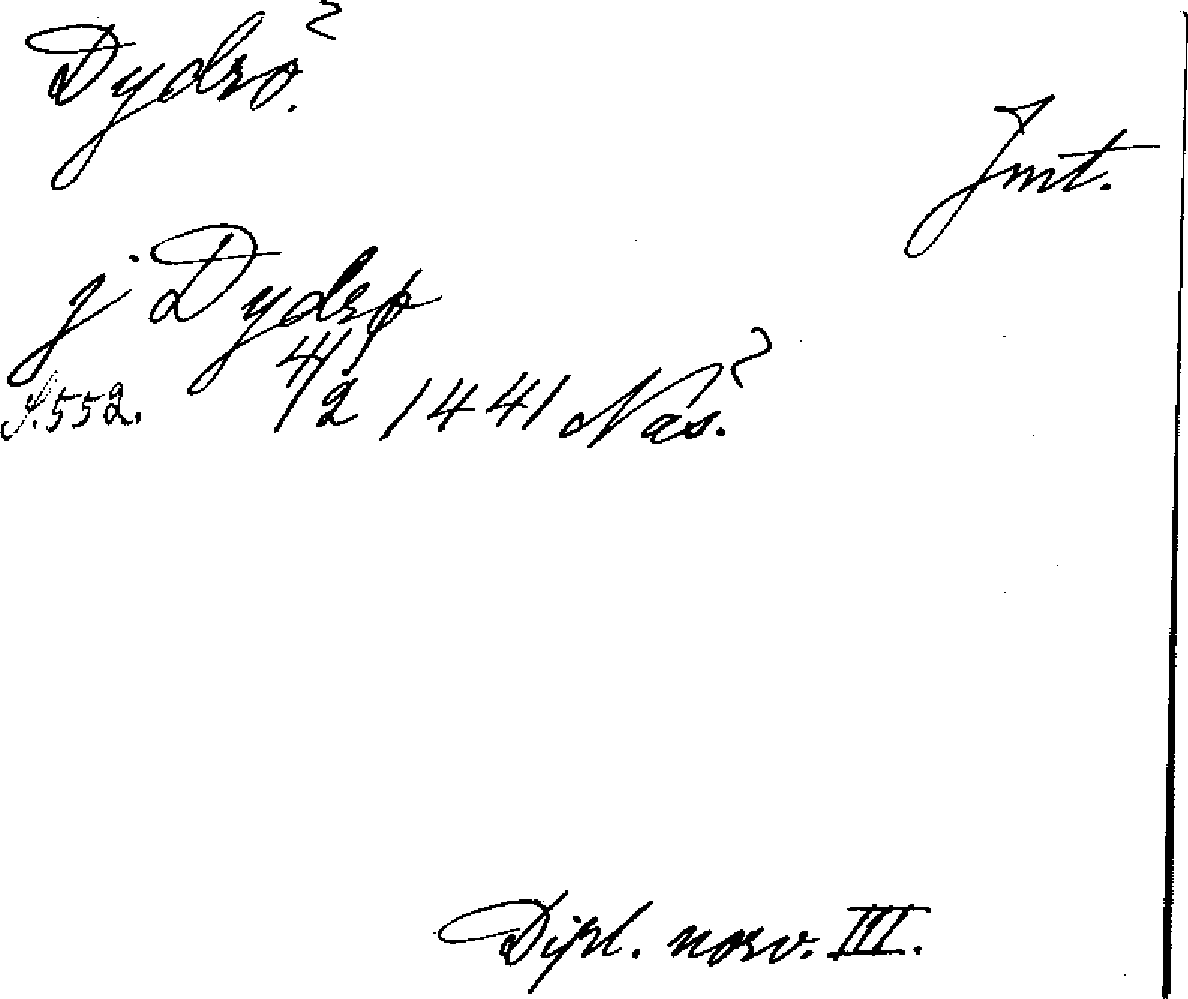 Dydrø?
Jmt.
j Dydrø
S. 552. 4/2 1441 Näs.?
Dipl. norv. III.